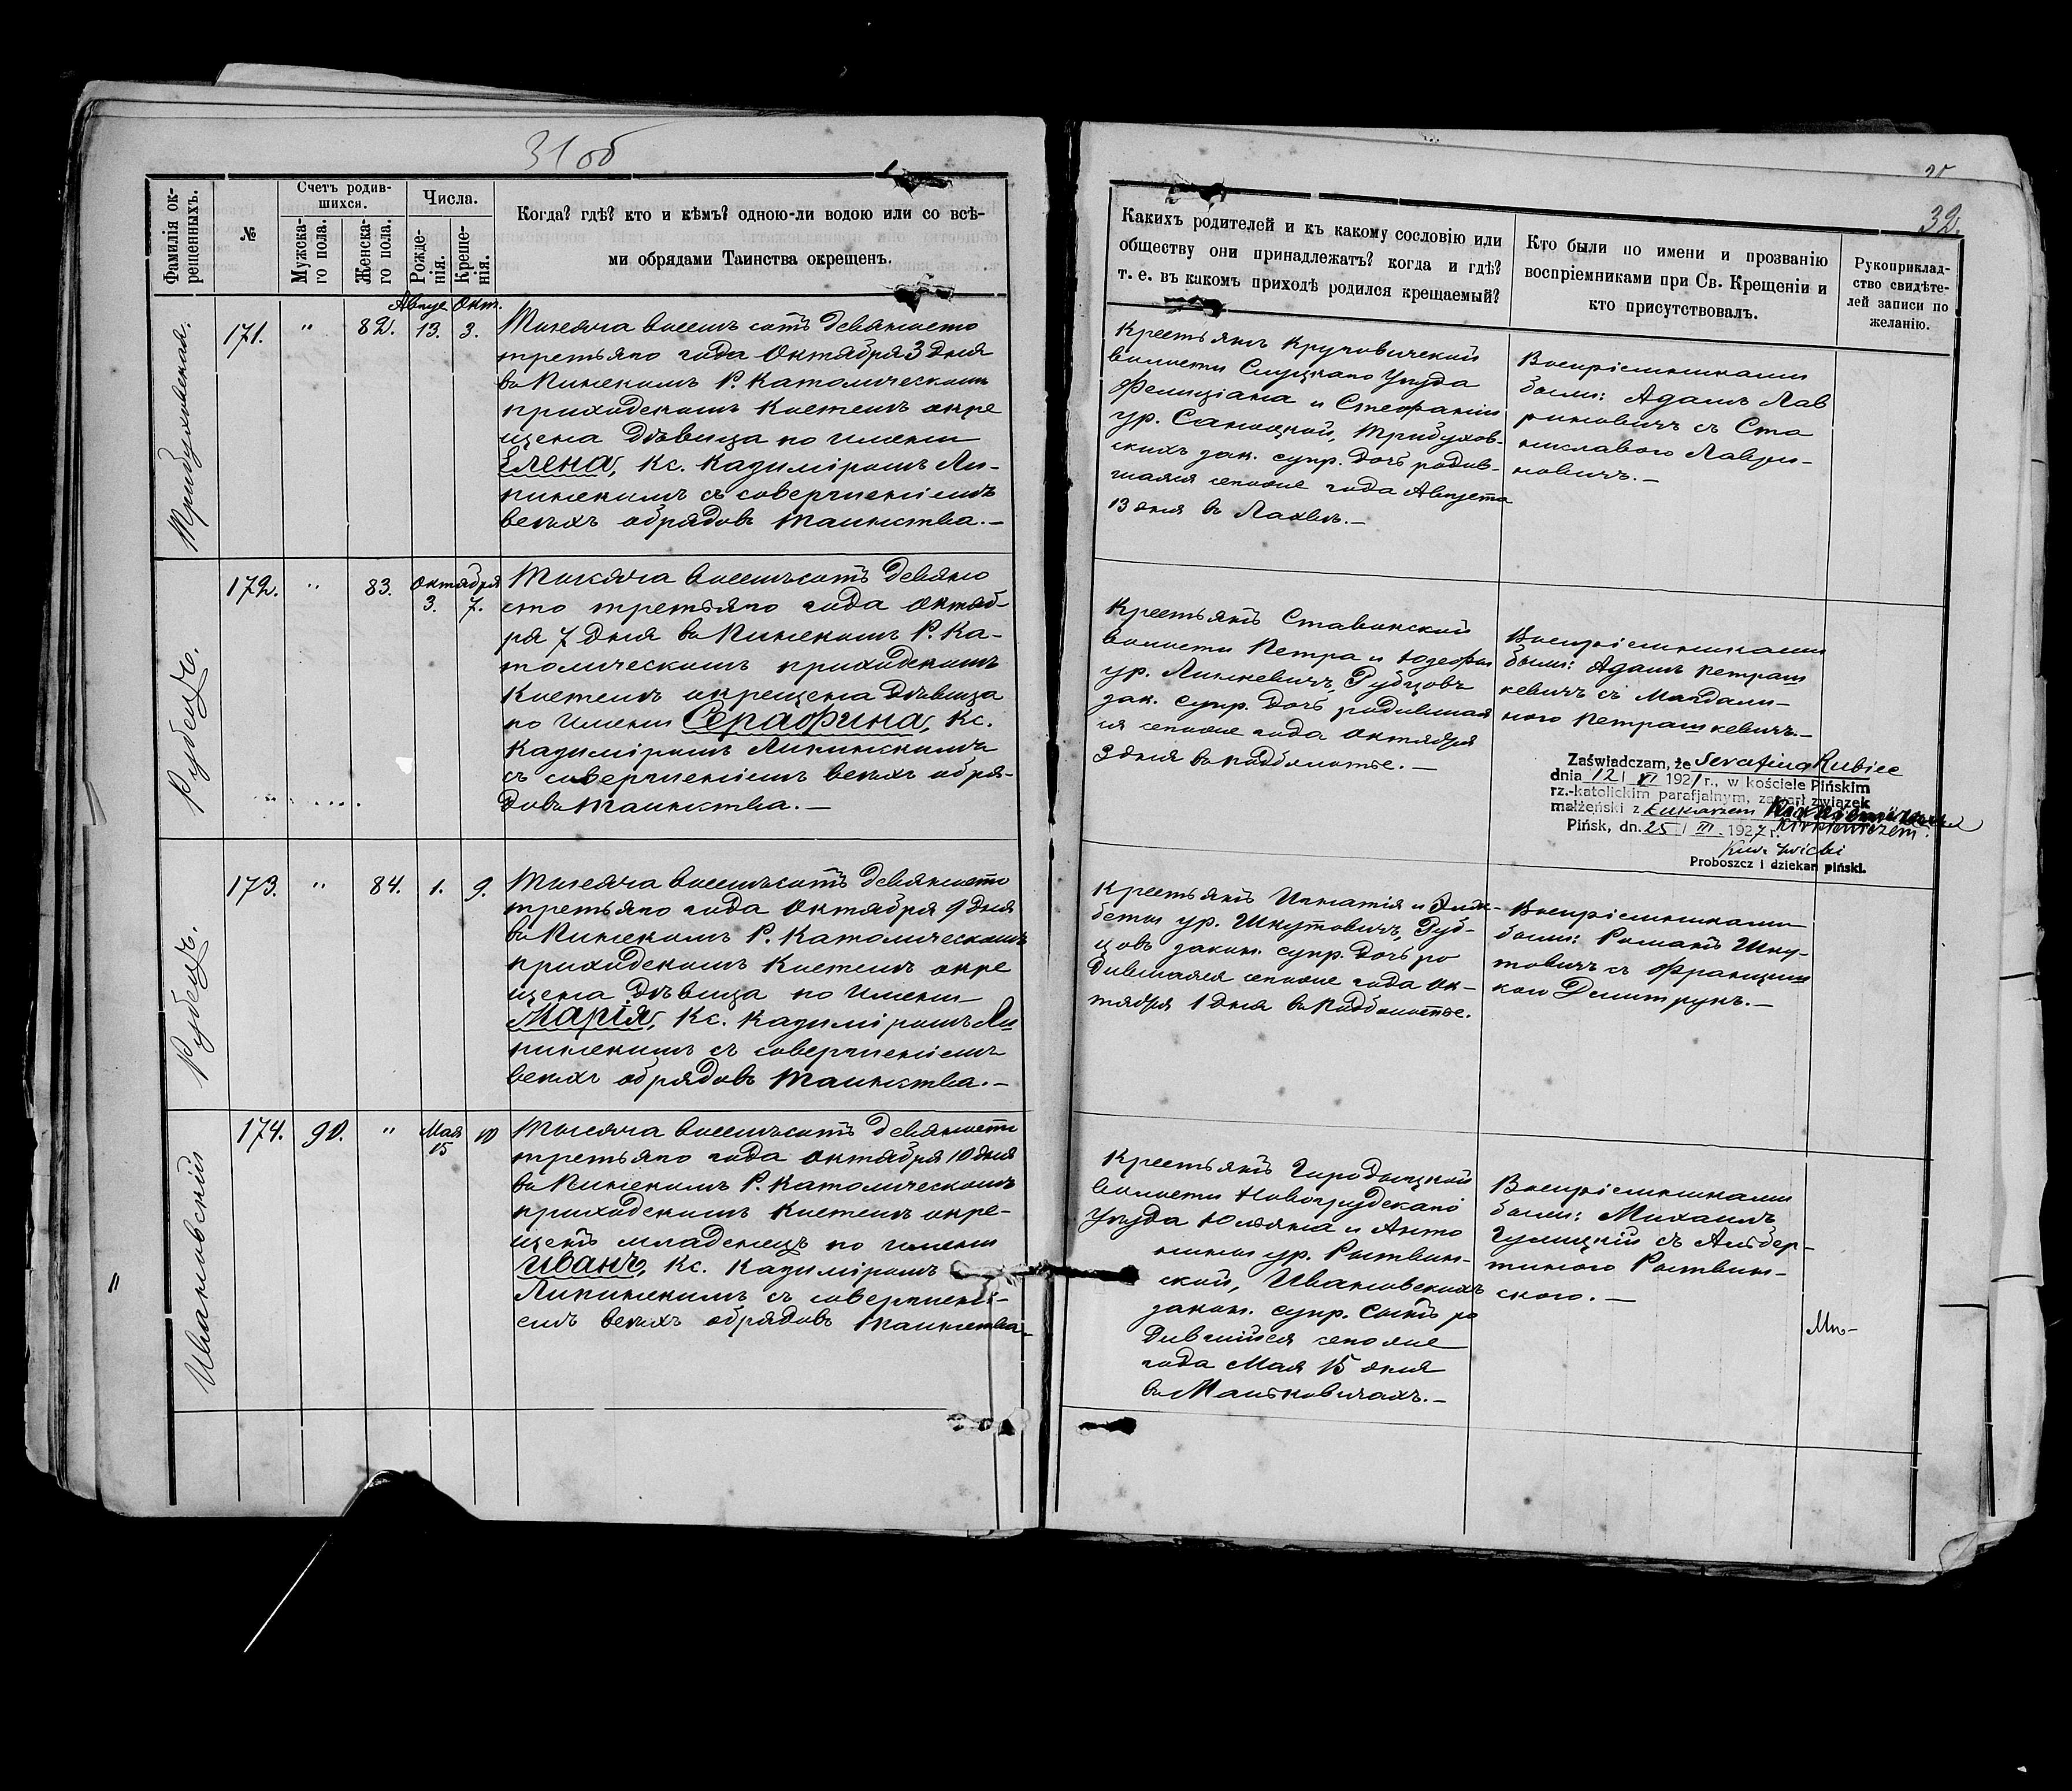 31 об
Фамилія ок-
рещенныхъ.
№
Счетъ родив-
шихся.
Мужска-
го пола.
Женска-
го пола.
Числа.
Рожде-
нія.
Креще-
нія.
Когда? гдѣ? кто и кѣмъ? одною-ли водою или со всѣ-
ми обрядами Таинства окрещенъ.
Трибуховская.
171.
"
82.
Август
13.
Окт.
3.
Тысяча восемь сотъ девяносто
третьяго года Октября 3 дня
въ Пинскомъ Р. Католическомъ
приходскомъ костелѣ окре
щена Дѣвица по имени
Елена, Кс. Казиміромъ Ли-
пинскимъ съ совершеніемъ
всѣхъ обрядовъ таинства.—
Рубецъ.
172.
"
83.
Октября
3.
7.
Тысяча восемьсотъ девяно
сто третьяго года Октяб-
ря 7 дня въ Пинскомъ Р. Ка-
толическомъ приходскомъ
Костелѣ окрещена Дѣвица
по имени Серафина, Кс.
Казиміромъ Липинскимъ
съ совершеніемъ всѣхъ обря-
довъ таинства.—
Рубецъ.
173.
"
84.
1.
9.
Тысяча восемьсотъ девяносто
третьяго года Октября 9 дня
въ Пинскомъ Р. Католическомъ
приходскомъ Костелѣ окре
щена Дѣвица по имени
Марія, Кс. Казиміромъ Ли
пинскимъ съ совершеніемъ
всѣхъ обрядовъ таинства.—
Ивановскій
174.
90.
"
Мая
15
10
Тысяча восемьсотъ девяносто
третьяго года Октября 10 дня
въ Пинскомъ Р. Католическомъ
приходскомъ Костелѣ окре-
щенъ младенецъ по имени
Иванъ, Кс. Казиміромъ
Липинскимъ съ совершені-
емъ всѣхъ обрядовъ таинства.
32.
Какихъ родителей и къ какому сословію или
обществу они принадлежатъ? когда и гдѣ?
т. е. въ какомъ приходѣ родился крещаемый?
Кто были по имени и прозванію
воспріемниками при Св. Крещеніи и
кто присутствовалъ.
Рукоприклад-
ство свидѣте-
лей записи по
желанію.
Крестьянъ Круговичской
волости Слуцкаго Уѣзда
Фелиціана и Стефаніи
ур. Саноцкой, Трибухов-
скихъ зак. супр. дочь родив-
шаяся сегоже года Августа
13 дня въ Лахвѣ.—
Воспріемниками
были: Адамъ Лав
риновичъ съ Ста
ниславою Лаври-
новичъ.—
Крестьянъ Ставокской
волости Петра и Юзефы
ур. Линкевичъ, Рубцовъ
зак. супр. дочь родившая
ся сегоже года Октября
3 дня въ Подболотье.—
Воспріемниками
были: Адамъ Петраш
кевичъ съ Магдали-
ною Петрашкевичъ.—
Zaświadczam, że Serafina Rubiec
dnia 12 / VI 1921 r., w kościele Pińskim
rz.-katolickim parafjalnym, zawarł związek
małżeński z Łukaszem
Kirkiewiczem.
Pińsk, dn. 25 / III 1927 r.
Proboszcz i dziekan piński.
Крестьянъ Игнатія и Эльж-
беты ур. Шкутовичъ, Руб-
цовъ закон. супр. дочь ро
дившаяся сегоже года Ок-
тября 1 дня въ Подболотье.
Воспріемниками
были: Романъ Шку-
товичъ съ Францишк
кою Дмитрукъ.—
Крестьянъ Городыщской
волости Новогрудскаго
Уѣзда Юльяна и Анто
нины ур. Ротвин-
ской, Ивановскихъ
закон. супр. сынъ ро
дившійся сегоже
года Мая 15 дня
въ Мальковичахъ.—
Воспріемниками
были: Михаилъ
Гулицкій съ Альбер-
тиною Ротвин-
скою.—